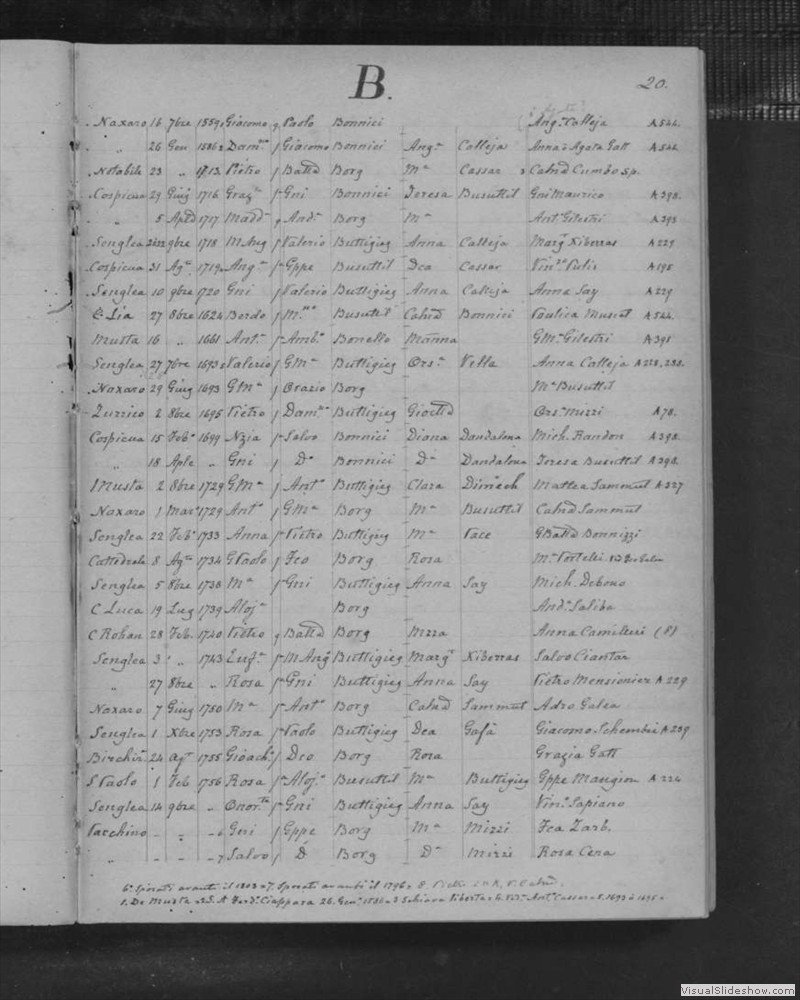 B.
20.
Naxaro 16 7bre 1559 Giacomo Paolo Bonnici Angª Calleja A544.
" 26 Gen 1586 f Giacomo Bonnici Angª Calleja Anna Agata Gatt A544
Notabile 23 " 1713 Pietro f Battᵃ Borg Mª Cassar 3 Catnd Cumbo sp.
Cospicua 29 Giug 1716 Grazª f Gni Bonnici Teresa Busuttil Gni Maurico A398.
" 5 Aple 1717 Madd Andª Borg Mª Antº Gilestri A393
Senglea 9bre 1718 M Ang f Valerio Buttigieg Anna Calleja Margª Xiberras A229
Cospicua 31 Agº 1719 Angº f Gppe Busuttil Dea Cassar A598
Senglea 10 9bre 1720 Gni f Valerio Buttigieg Anna Calleja Anna Say A229
C. Lia 27 8bre 1624 Berdo f Busuttil Catnd Bonnici Paulica Muscat A544.
Musta 16 " 1661 Antº f Ambº Bonello Manna GMª Gilestri A398
Senglea 27 7bre 1693 Valerio f GMª Buttigieg Orsª Vella Anna Calleja A228.230.
Naxaro 29 Giug 1693 GMª f Orazio Borg Mª Busuttil
Zurrico 2 8bre 1695 Pietro f Damº Buttigieg Orsª Mizzi A78.
Cospicua 15 Febº 1699 Nzia f Salvo Bonnici Diana Dandalona Mich. Randon A398.
" 18 Aple " Gni f Dº Bonnici Dª Dandalona Teresa Busuttil A398.
Musta 2 8bre 1729 GMª f Antº Buttigieg Clara Dimech Mattea Sammut A327
Naxaro 1 Marº 1729 Antº f GMª Borg Mª Busuttil Catnd Sammut
Senglea 22 Febº 1733 Anna f Pietro Buttigieg Mª Pace GBattᵃ Bonnizzi
Cattedrale 8 Agº 1734 GPaolo f Fco Borg Rosa Mª Portelli
Senglea 5 8bre 1738 Mª f Gni Buttigieg Anna Say Mich. Debono
C Luca 19 Lug 1739 Alojª Borg Andª Saliba
C Rohan 28 Feb. 1740 Pietro Battᵃ Borg Anna Camilleri (8)
Senglea 3 " 1743 Eugª f M Angº Buttigieg Margª Xiberras Salvo Ciantar
" 27 8bre " Rosa f Gni Buttigieg Anna Say Pietro Mensionier A229
Naxaro 7 Giug 1750 Mª f Antº Borg Catnd Sammut Adeo Galea
Senglea 1 Xbre 1753 Rosa f Paolo Buttigieg Dea Gafà Giacomo Schembri A239
Birchir. 24 Agº 1755 Gioachº f Deo Borg Rosa Grazia Gatt
S Paolo 1 Feb 1756 Rosa f Alojº Busuttil Mª Buttigieg Gppe Mangion A224
Senglea 14 9bre " f Gni Buttigieg Anna Say Vinº Sapiano
Vacchino - - -6 Gni f Gppe Borg Mª Mizzi Fca Zarb.
" - - -7 Salvo f D Borg Dª Mizzi Rosa Cena
6. Sposati avanti il 1803 7. Sposati avanti il 1796
1. De Musta Ciappara 26. Genº
VisualSlideshow.com